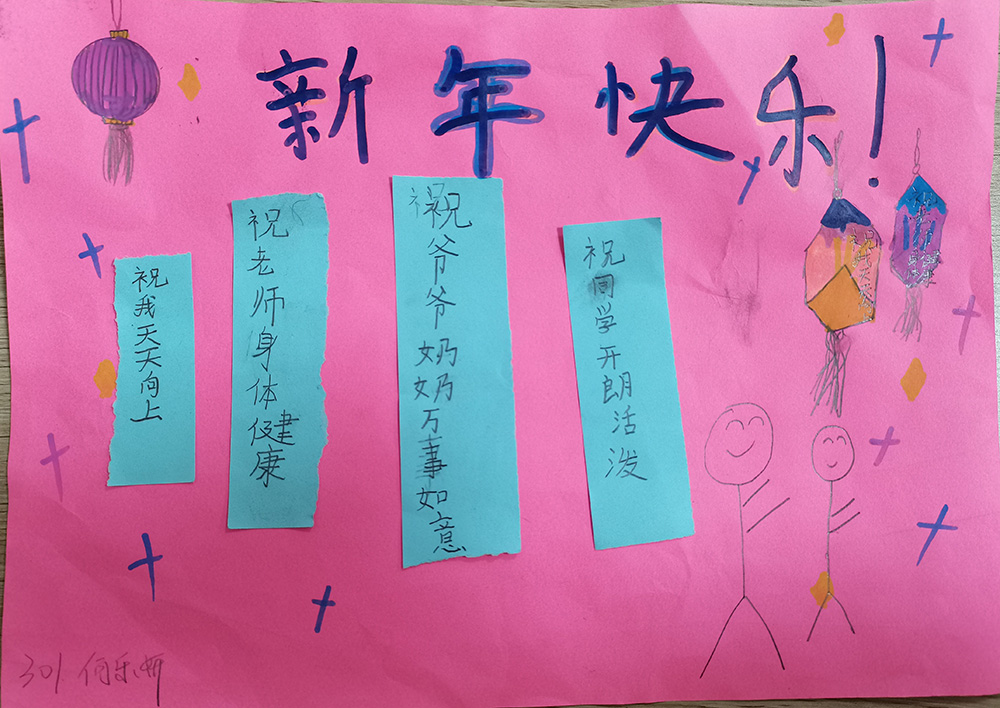 新年快乐！
祝我天天向上
祝老师身体健康
祝爷爷奶奶万事如意
祝同学开朗活泼
301